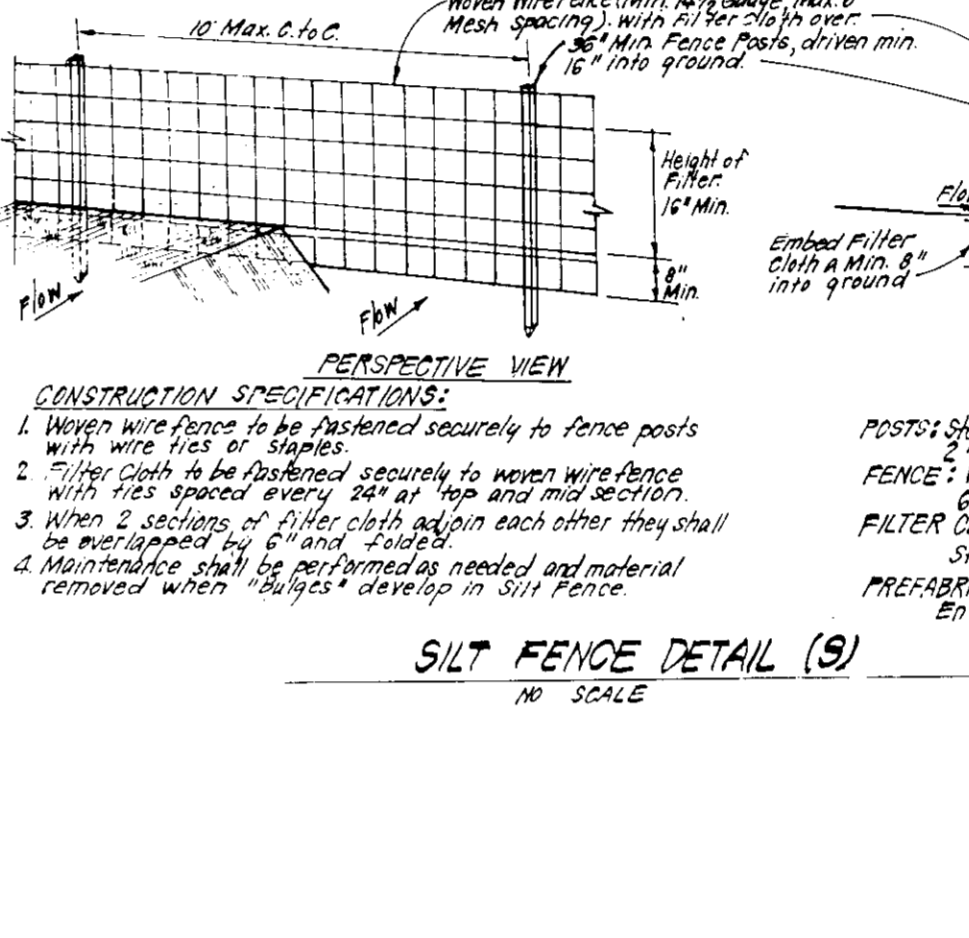 Woven Wire Fence (Min. 14½ Gauge, Max. 6"
Mesh Spacing). With Filter Cloth over.
10' Max. C. to C.
36" Min. Fence Posts, driven min.
16" into ground.
Height of
Filter.
16" Min.
8"
Min.
Flow
Flow
Flo
Embed Filter
Cloth A Min. 8"
into ground
PERSPECTIVE VIEW
CONSTRUCTION SPECIFICATIONS:
1. Woven wire fence to be fastened securely to fence posts
with wire ties or staples.
2. Filter Cloth to be fastened securely to woven wire fence
with ties spaced every 24" at top and mid section.
3. When 2 sections of filter cloth adjoin each other they shall
be overlapped by 6" and folded.
4. Maintenance shall be performed as needed and material
removed when "Bulges" develop in Silt Fence.
POSTS: St
2
FENCE:
6
FILTER C
St
PREFABRI
En
SILT FENCE DETAIL (S)
NO SCALE